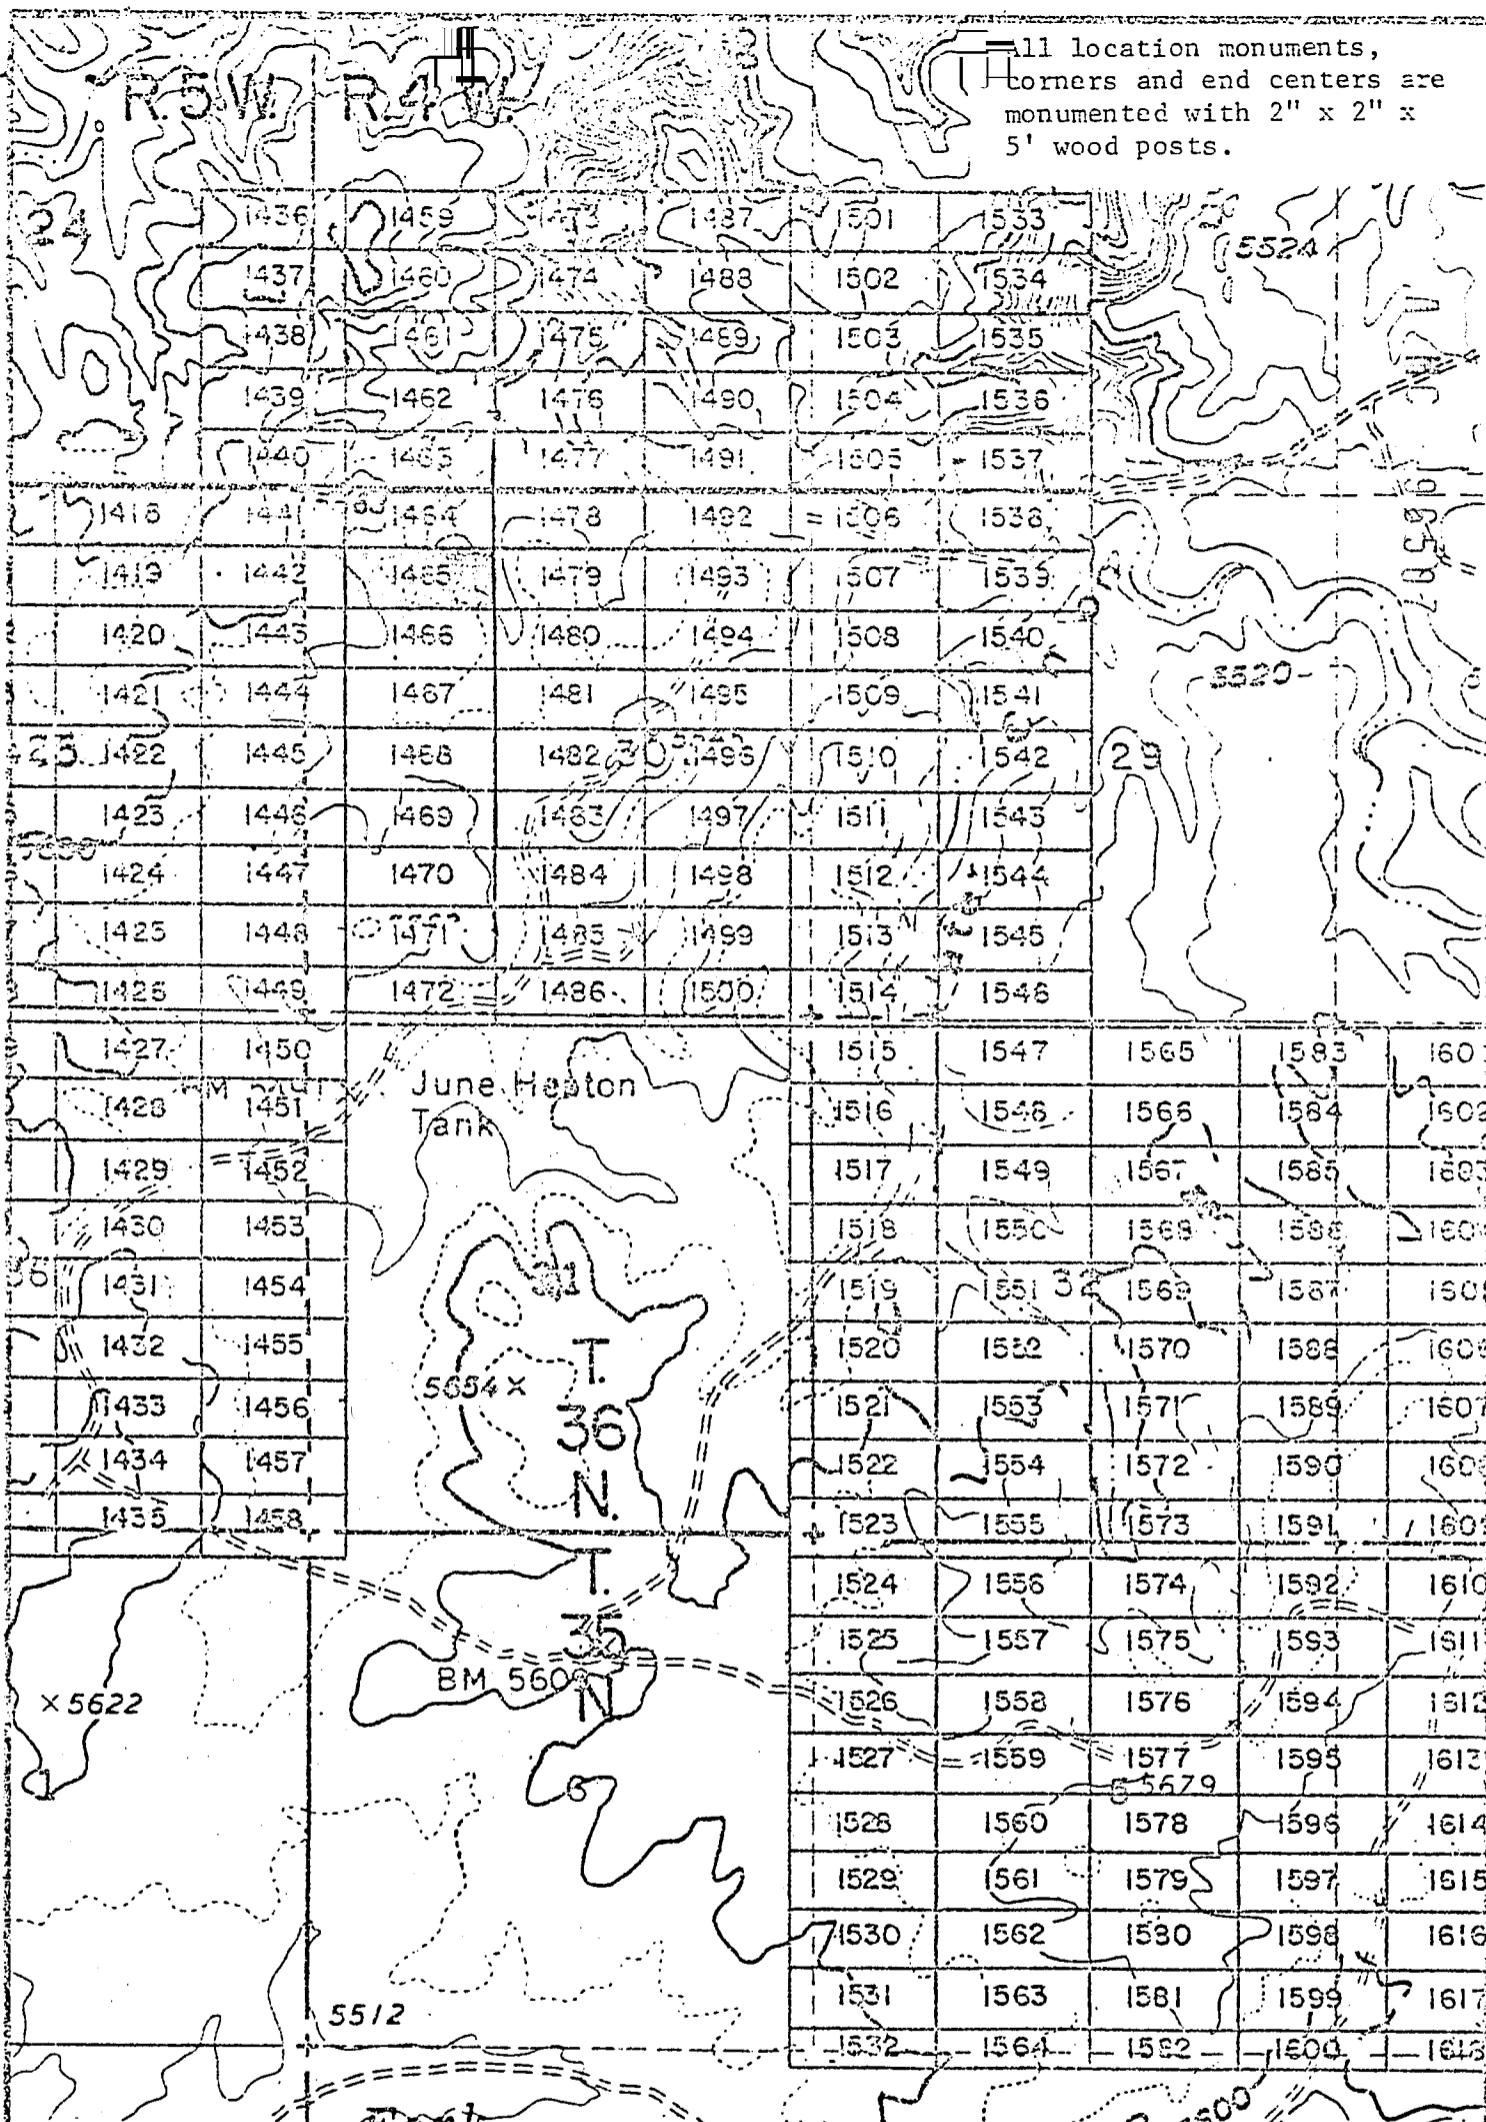 All location monuments,
corners and end centers are
monumented with 2" x 2" x
5' wood posts.
R.5W. R.4W.
24
1436 1459 1473 1487 1501 1533
5524
1437 1460 1474 1488 1502 1534
1438 1461 1475 1489 1503 1535
1439 1462 1476 1490 1504 1536
1440 1463 1477 1491 1505 1537
1418 1441 1464 1478 1492 1506 1538
1419 1442 1465 1479 1493 1507 1539
1420 1443 1466 1480 1494 1508 1540
1421 1444 1467 1481 1495 1509 1541
5520
1422 1445 1468 1482 30 1496 1510 1542 29
1423 1446 1469 1483 1497 1511 1543
1424 1447 1470 1484 1498 1512 1544
1425 1448 1471 1485 1499 1513 1545
1426 1449 1472 1486 1500 1514 1546
1427 1450 1515 1547 1565 1583
June Hepton
Tank
1428 1451 1516 1548 1566 1584 1602
1429 1452 1517 1549 1567 1585 1603
1430 1453 1518 1550 1568 1586
36 1431 1454 31 1519 1551 32 1569 1587
T.
36
N.
1432 1455 1520 1552 1570 1588 1606
5654 ×
1433 1456 1521 1553 1571 1589 1607
1434 1457 1522 1554 1572 1590
1435 1458 1523 1555 1573 1591 1609
T.
35
N
1524 1556 1574 1592 1610
1525 1557 1575 1593 1611
BM 560
× 5622
1526 1558 1576 1594 1612
1527 1559 1577 1595 1613
5 5679
6
1528 1560 1578 1596 1614
1529 1561 1579 1597 1615
1530 1562 1580 1598 1616
1531 1563 1581 1599 1617
5512
1532 1564 1582 1600 1618